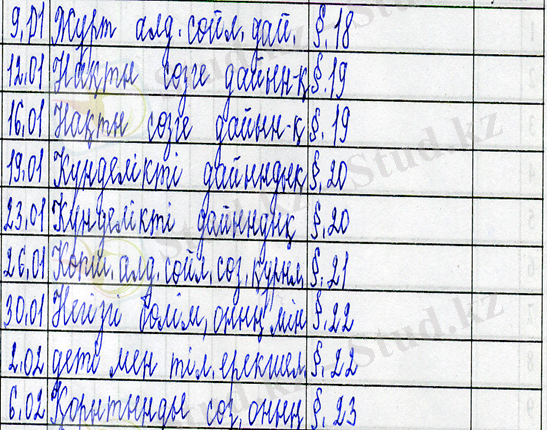 9.01 Жұрт алд. сөйл. дай. §.18
12.01 Нақты сөзге дайын-қ §.19
16.01 Нақты сөзге дайын-қ §.19
19.01 Күнделікті дайындық §.20
23.01 Күнделікті дайындық §.20
26.01 Көпш. алд. сөйл. сөз. құрыл §.21
30.01 Негізгі бөлім, оның мін §.22
2.02 деті мен тіл. ерекшел §.22
6.02 Қорытынды сөз, оның §.23